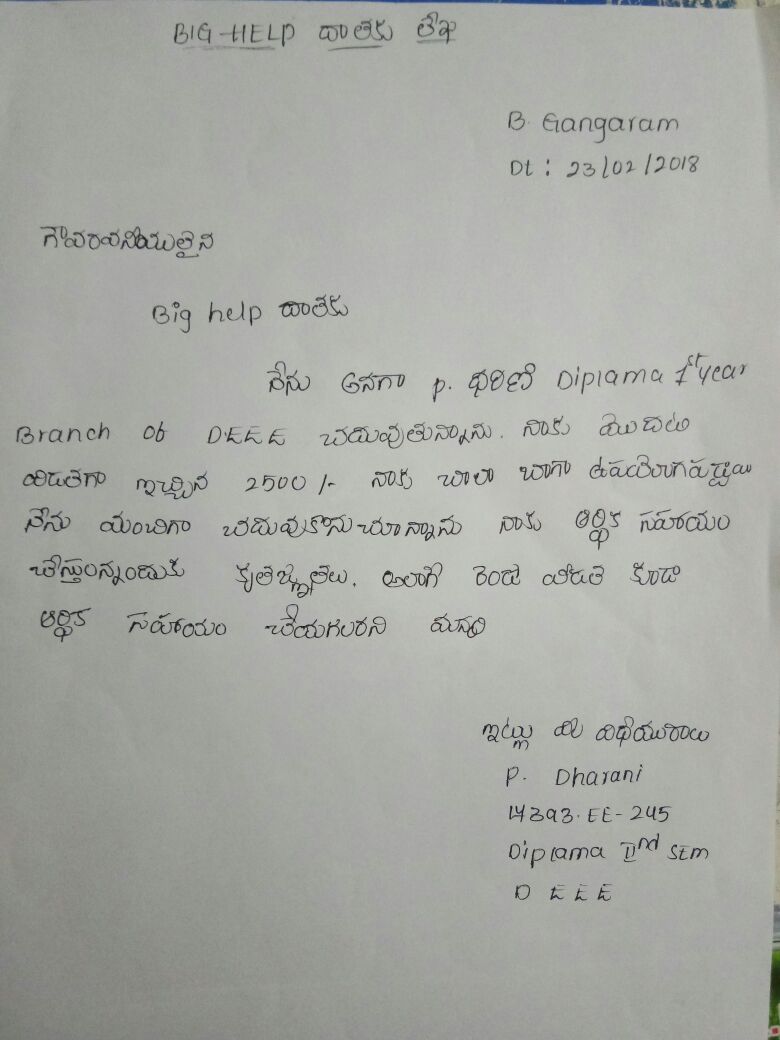 BIG-HELP దాతకు లేఖ
B. Gangaram
Dt : 23/02/2018
గౌవరవనీయులైన
Big help దాతకు
నేను అనగా p. ధరణి Diplama 1st year
Branch ob DEEE చదువుతున్నాను. నాకు మొదటి
విడతగా ఇచ్చిన 2500/- నాకు చాలా బాగా ఉపయోగపడ్డాయి
నేను మంచిగా చదువుకొనుచూన్నాను నాకు ఆర్థిక సహాయం
చేస్తున్నందుకు కృతజ్ఞతలు. అలాగే రెండో విడత కూడా
ఆర్థిక సహాయం చేయగలరని మనవి
ఇట్లు మీ విధేయురాలు
P. Dharani
17393.EE-245
Diplama IInd SEM
D E E E